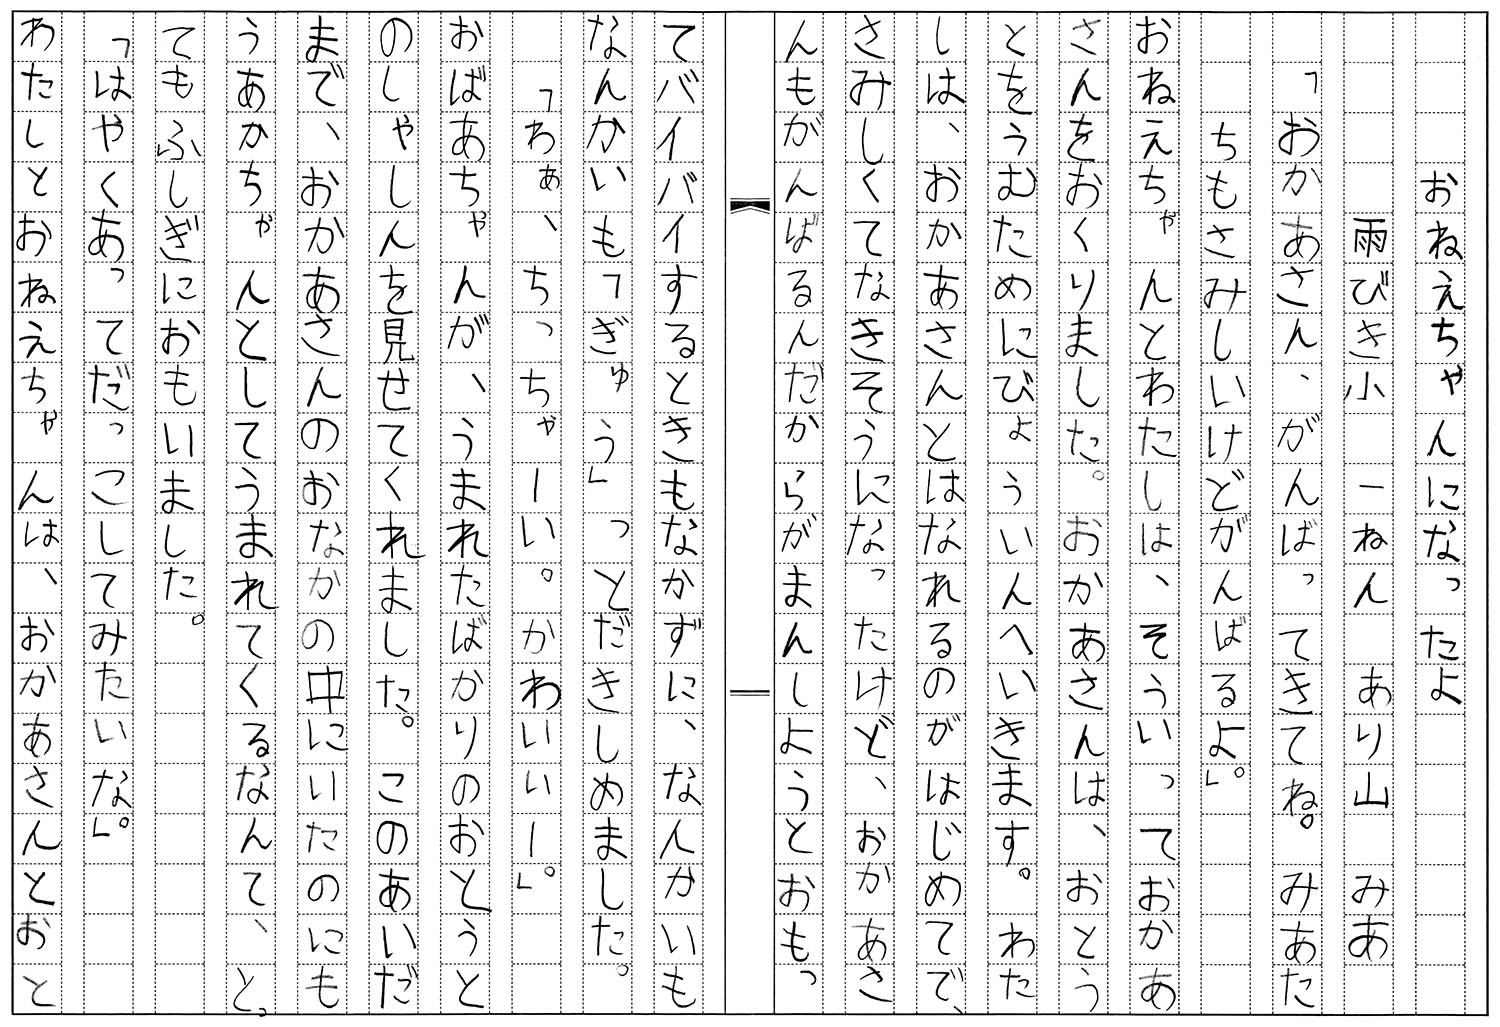 おねえちゃんになったよ
雨びき小 一ねん あり山 みあ
「おかあさん、がんばってきてね。みあた
ちもさみしいけどがんばるよ。」
おねえちゃんとわたしは、そういっておかあ
さんをおくりました。おかあさんは、おとう
とをうむためにびょういんへいきます。わた
しは、おかあさんとはなれるのがはじめてで、
さみしくてなきそうになったけど、おかあさ
んもがんばるんだからがまんしようとおもっ
てバイバイするときもなかずに、なんかいも
なんかいも「ぎゅう」っとだきしめました。
「わぁ、ちっちゃーい。かわいいー。」
おばあちゃんが、うまれたばかりのおとうと
のしゃしんを見せてくれました。このあいだ
まで、おかあさんのおなかの中にいたのにも
うあかちゃんとしてうまれてくるなんて、と、
てもふしぎにおもいました。
「はやくあってだっこしてみたいな。」
わたしとおねえちゃんは、おかあさんとおと